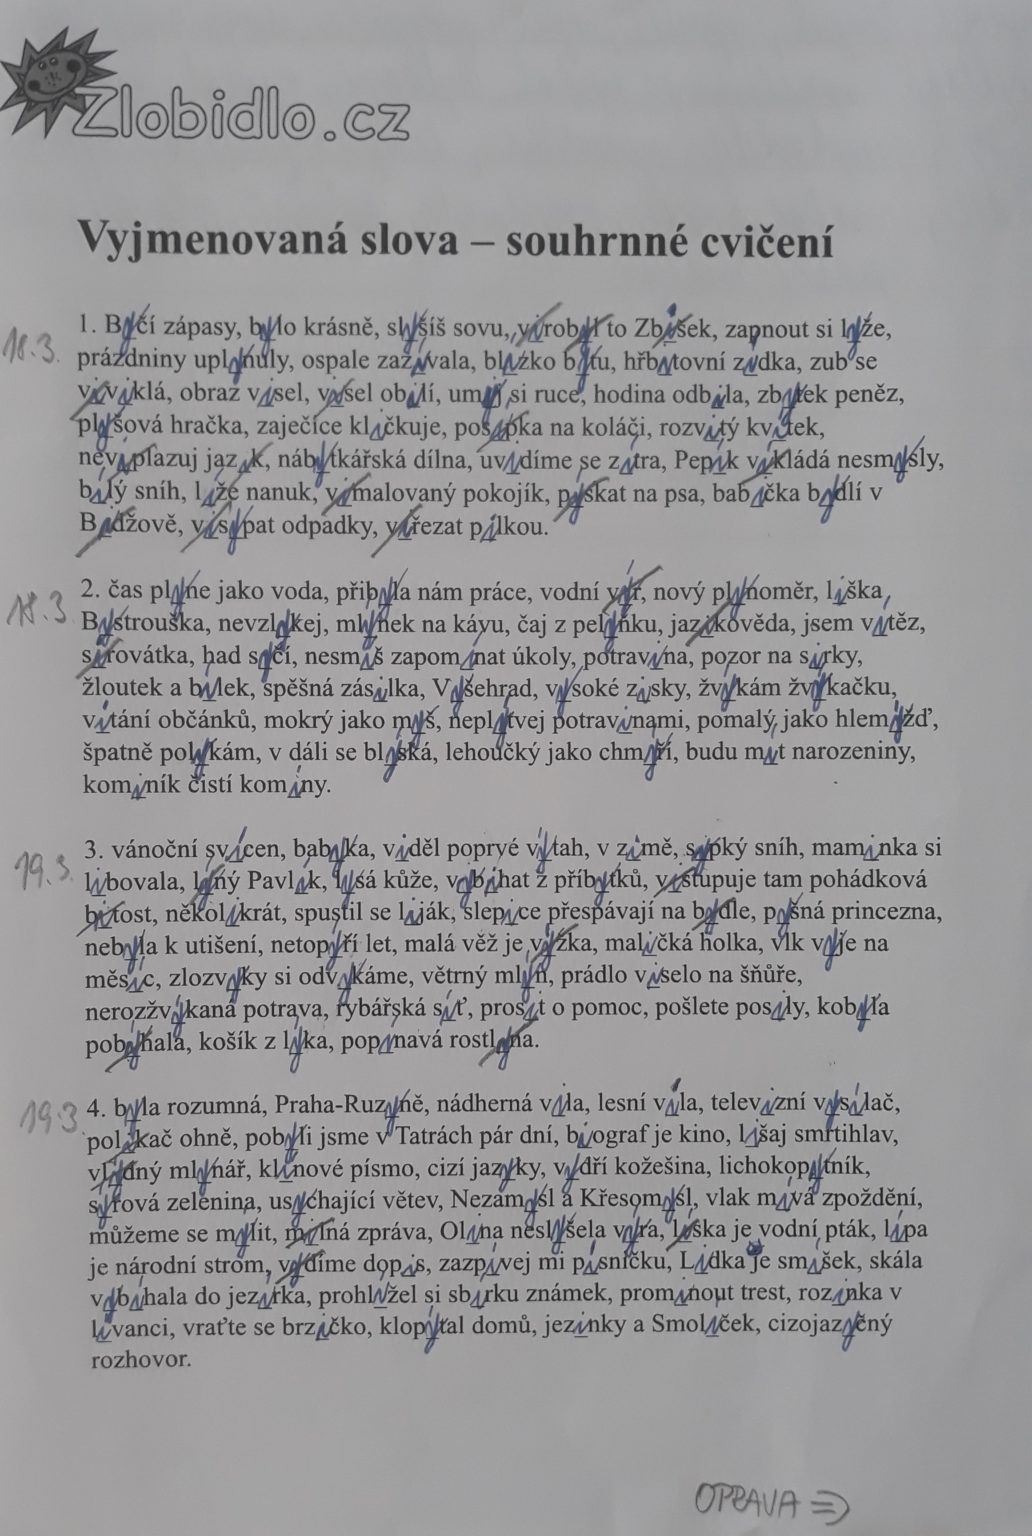 Zlobidlo.cz
Vyjmenovaná slova – souhrnné cvičení
18.3. 1. Býčí zápasy, bylo krásně, slyšíš sovu, virobyl to Zbišek, zapnout si lyže,
prázdniny uplynuly, ospale zazívala, blízko bytu, hřbitovní zídka, zub se
viviklá, obraz visel, visel obilí, umyj si ruce, hodina odbila, zbytek peněz,
plyšová hračka, zaječíce kličkuje, posipka na koláči, rozvitý kvítek,
neviplazuj jazik, nábytkářská dílna, uvidíme se zítra, Pepík vikládá nesmysly,
bílý sníh, líže nanuk, vimalovaný pokojík, pýskat na psa, babička bydlí v
Bidžově, visypat odpadky, viřezat pilkou.
18.3 2. čas plyne jako voda, přibyla nám práce, vodní výr, nový plynoměr, liška
Bystrouška, nevzlykej, mlýnek na kávu, čaj z pelyňku, jazikověda, jsem vítěz,
sirovátka, had syčí, nesmíš zapomínat úkoly, potravina, pozor na sirky,
žloutek a bílek, spěšná zásilka, Vyšehrad, vysoké zisky, žvýkám žvýkačku,
vítání občánků, mokrý jako myš, neplýtvej potravinami, pomalý jako hlemýžď,
špatně polykám, v dáli se blýská, lehoučký jako chmýří, budu mít narozeniny,
kominík čistí komíny.
19.3. 3. vánoční svícen, babyka, viděl poprvé výtah, v zimě, sypký sníh, maminka si
libovala, lýný Pavlík, lysá kůže, vybíhat z příbytků, vistupuje tam pohádková
bitost, několikrát, spustil se liják, slepice přespávají na bydle, pyšná princezna,
nebyla k utišení, netopýří let, malá věž je výžka, maličká holka, vlk vyje na
měsíc, zlozvyky si odvykáme, větrný mlýn, prádlo viselo na šňůře,
nerozžvýkaná potrava, rybářská síť, prosit o pomoc, pošlete posily, kobyla
pobýhala, košík z lýka, popínavá rostlyna.
19.3 4. byla rozumná, Praha-Ruzyně, nádherná vila, lesní víla, televizní vysílač,
polikač ohně, pobyli jsme v Tatrách pár dní, biograf je kino, lišaj smrtihlav,
vlýdný mlynář, klínové písmo, cizí jazyky, vydří kožešina, lichokopytník,
sýrová zelenina, usychající větev, Nezamysl a Křesomysl, vlak mívá zpoždění,
můžeme se mýlit, milná zpráva, Olina neslyšela výra, liska je vodní pták, lípa
je národní strom, vydíme dopis, zazpívej mi písničku, Lidka je smíšek, skála
vybíhala do jezírka, prohlížel si sbírku známek, prominout trest, rozinka v
lívanci, vraťte se brzičko, klopýtal domů, jezinky a Smolíček, cizojazyčný
rozhovor.
OPRAVA ⇒